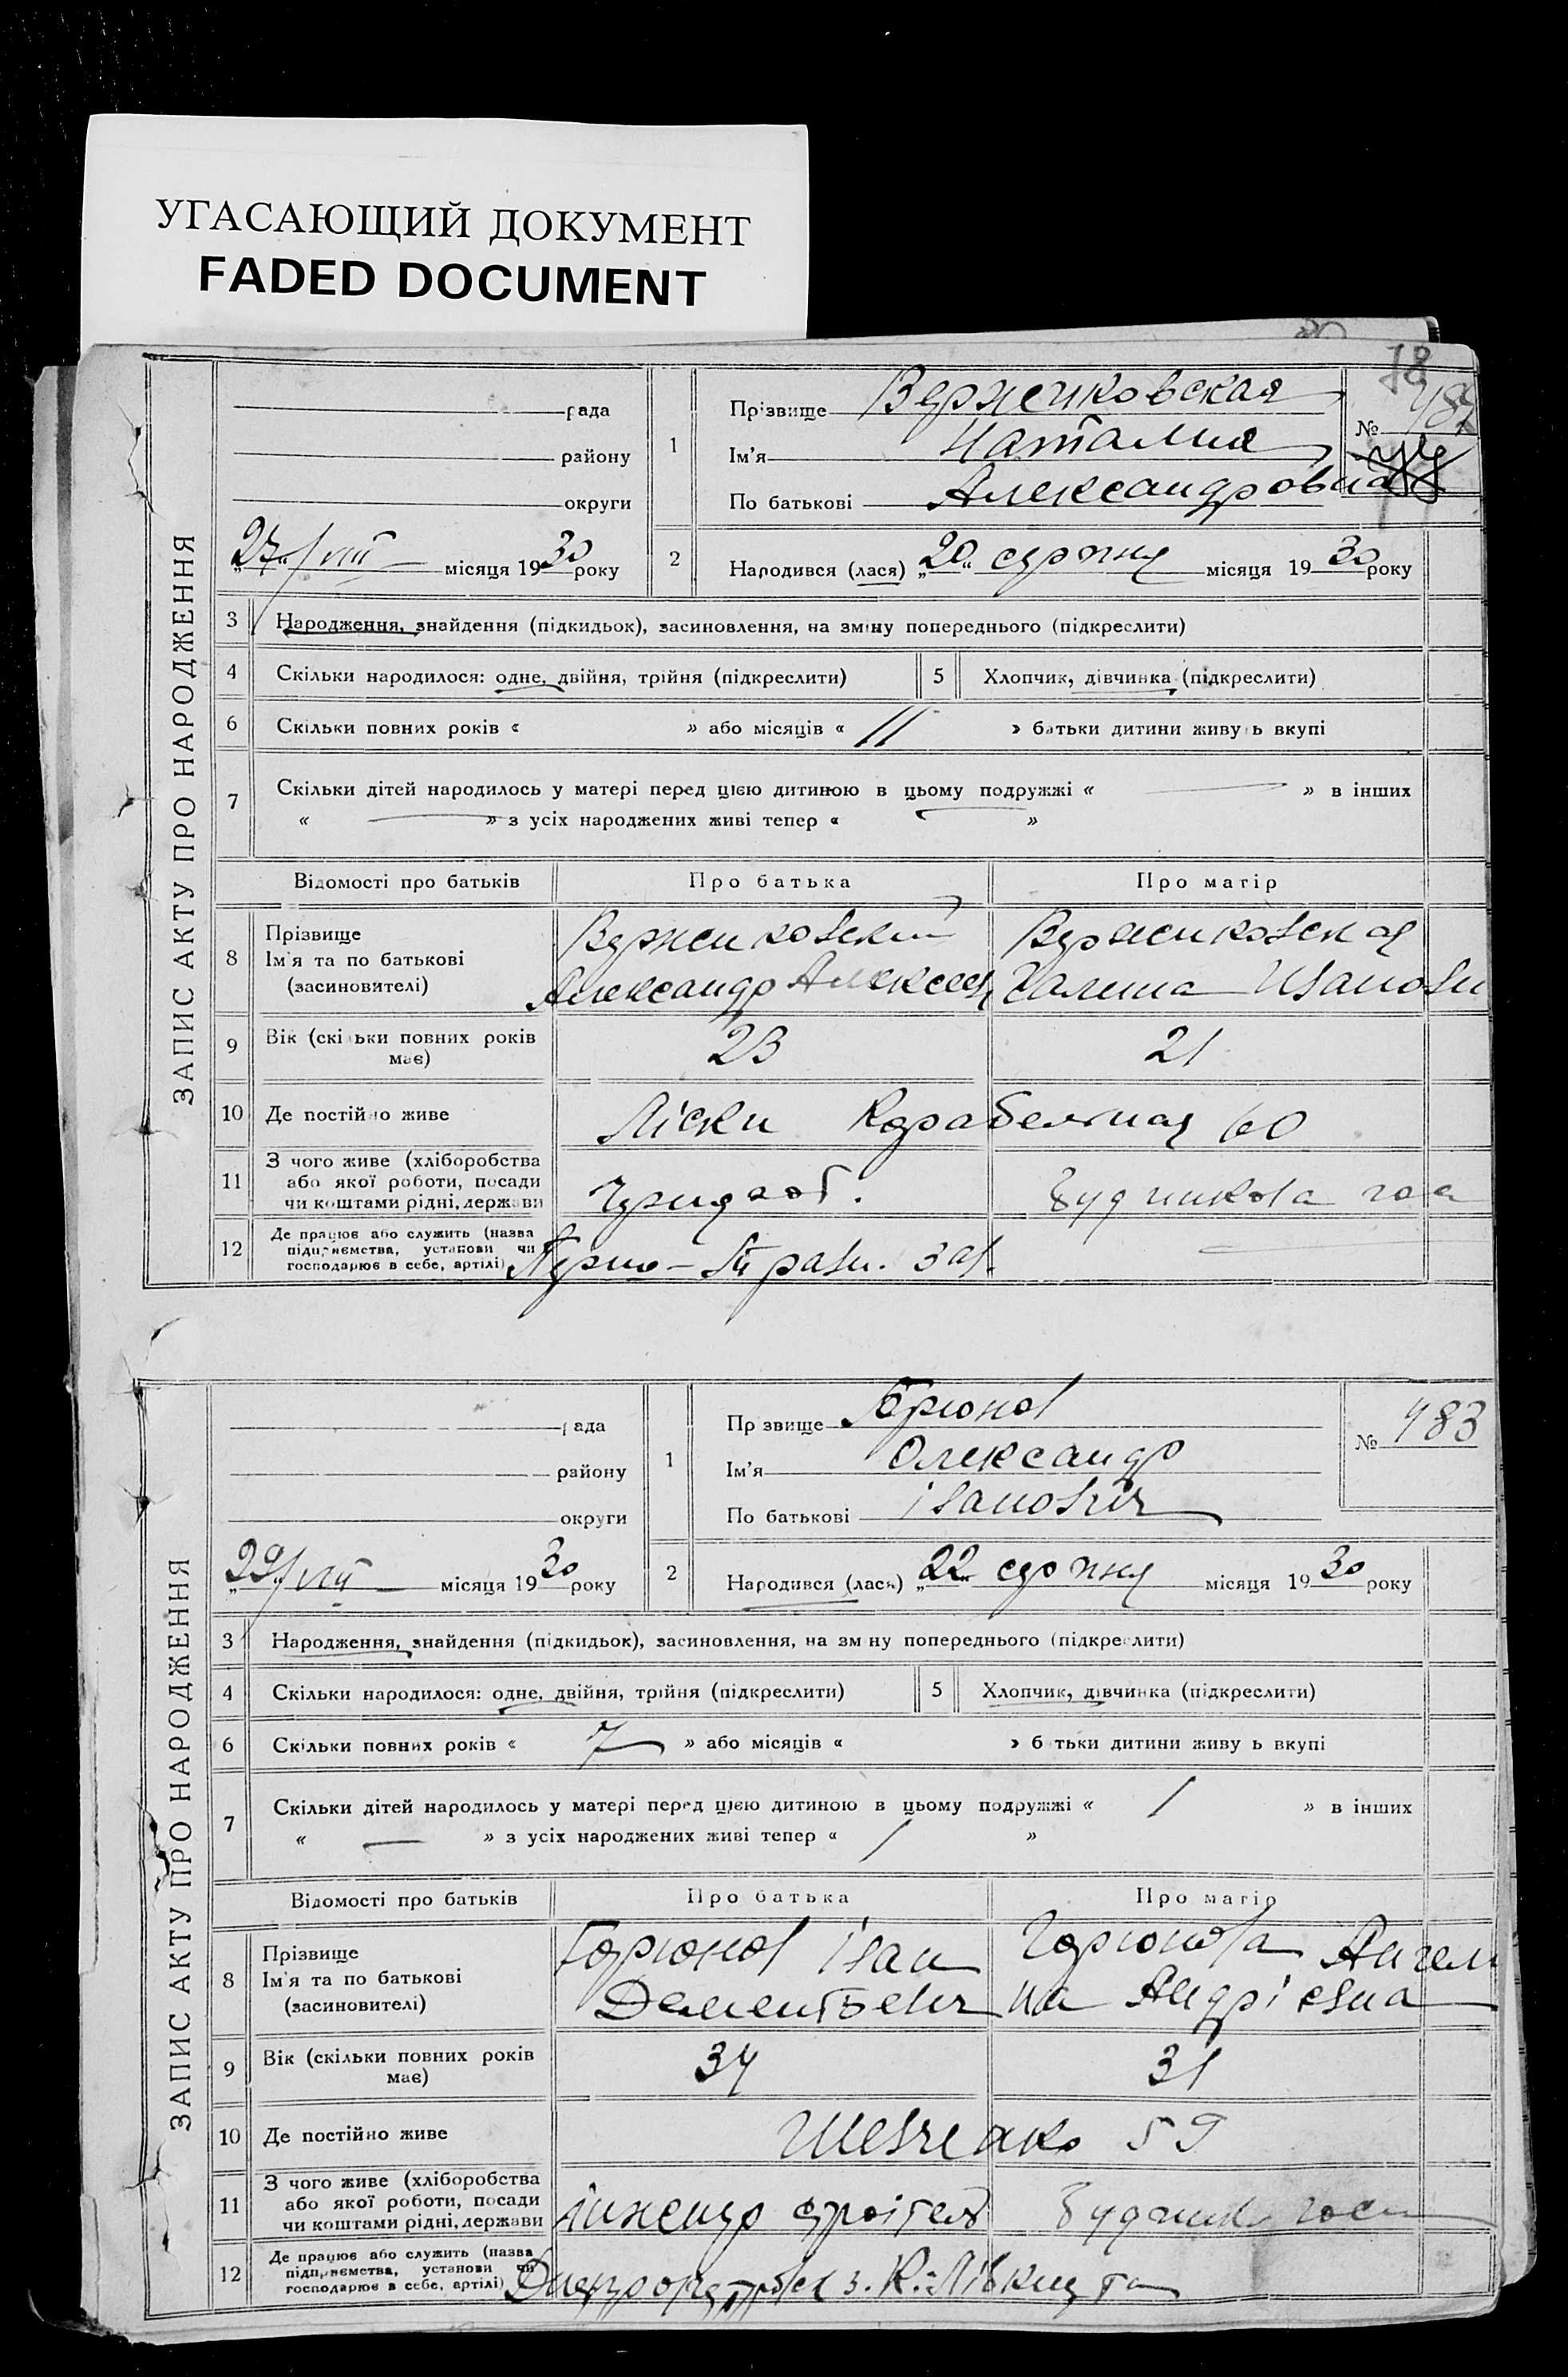 УГАСАЮЩИЙ ДОКУМЕНТ
FADED DOCUMENT
78
ЗАПИС АКТУ ПРО НАРОДЖЕННЯ
рада
району
округи
„27“ VIII місяця 1930 року
1
Прізвище Верженковская
Ім'я Наталия
По батькові Александровна
№ 482
2
Народився (лася) „20“ серпня місяця 1930 року
3 Народження, знайдення (підкидьок), засиновлення, на зміну попереднього (підкреслити)
4 Скільки народилося: одне, двійня, трійня (підкреслити) 5 Хлопчик, дівчинка (підкреслити)
6 Скільки повних років « » або місяців « 11 » батьки дитини живуть вкупі
7 Скільки дітей народилось у матері перед цією дитиною в цьому подружжі « — » в інших
« — » з усіх народжених живі тепер « — »
Відомості про батьків Про батька Про матір
8 Прізвище
Ім'я та по батькові
(засиновителі)
Верженковский
Александр Алексеев
Верженковская
Галина Иванови
9 Вік (скільки повних років має) 23 21
10 Де постійно живе Ліски Корабельная 60
11 З чого живе (хліборобства
або якої роботи, посади
чи коштами рідні, держави
12 Де працює або служить (назва
підприємства, установи чи
господарює в себе, артілі)
ЗАПИС АКТУ ПРО НАРОДЖЕННЯ
рада
району
округи
„29“ VIII місяця 1930 року
1
Прізвище Горюнов
Ім'я Олександр
По батькові Іванович
№ 483
2
Народився (лася) „22“ серпня місяця 1930 року
3 Народження, знайдення (підкидьок), засиновлення, на зміну попереднього (підкреслити)
4 Скільки народилося: одне, двійня, трійня (підкреслити) 5 Хлопчик, дівчинка (підкреслити)
6 Скільки повних років « 7 » або місяців « » батьки дитини живуть вкупі
7 Скільки дітей народилось у матері перед цією дитиною в цьому подружжі « 1 » в інших
« — » з усіх народжених живі тепер « 1 »
Відомості про батьків Про батька Про матір
8 Прізвище
Ім'я та по батькові
(засиновителі)
Горюнов Іван
Дементьевич
Горюнова Ангели
на Андріевна
9 Вік (скільки повних років має) 34 31
10 Де постійно живе Шевченко 59
11 З чого живе (хліборобства
або якої роботи, посади
чи коштами рідні, держави
інженер
12 Де працює або служить (назва
підприємства, установи чи
господарює в себе, артілі)